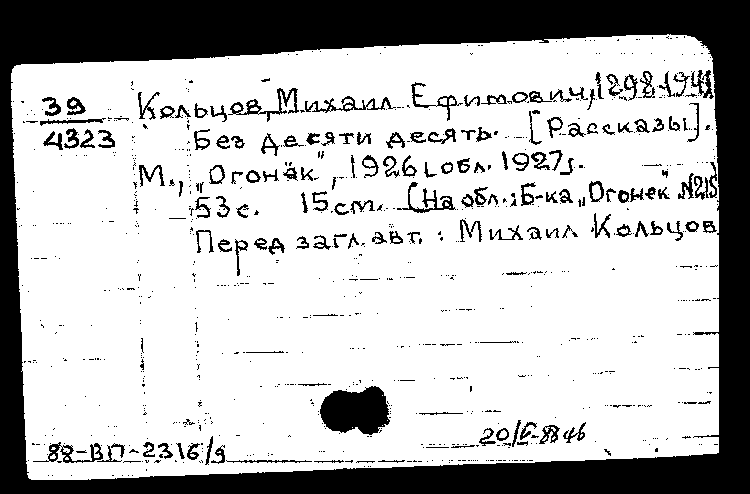 39 Кольцов, Михаил Ефимович, 1898-1941
4323 Без десяти десять. [Рассказы].
М., „Огонёк", 1926 [обл. 1927].
53 с. 15 см. (На обл.: Б-ка „Огонек" №215
Перед загл. авт.: Михаил Кольцов
88-ВП-2316/9 20/V-88